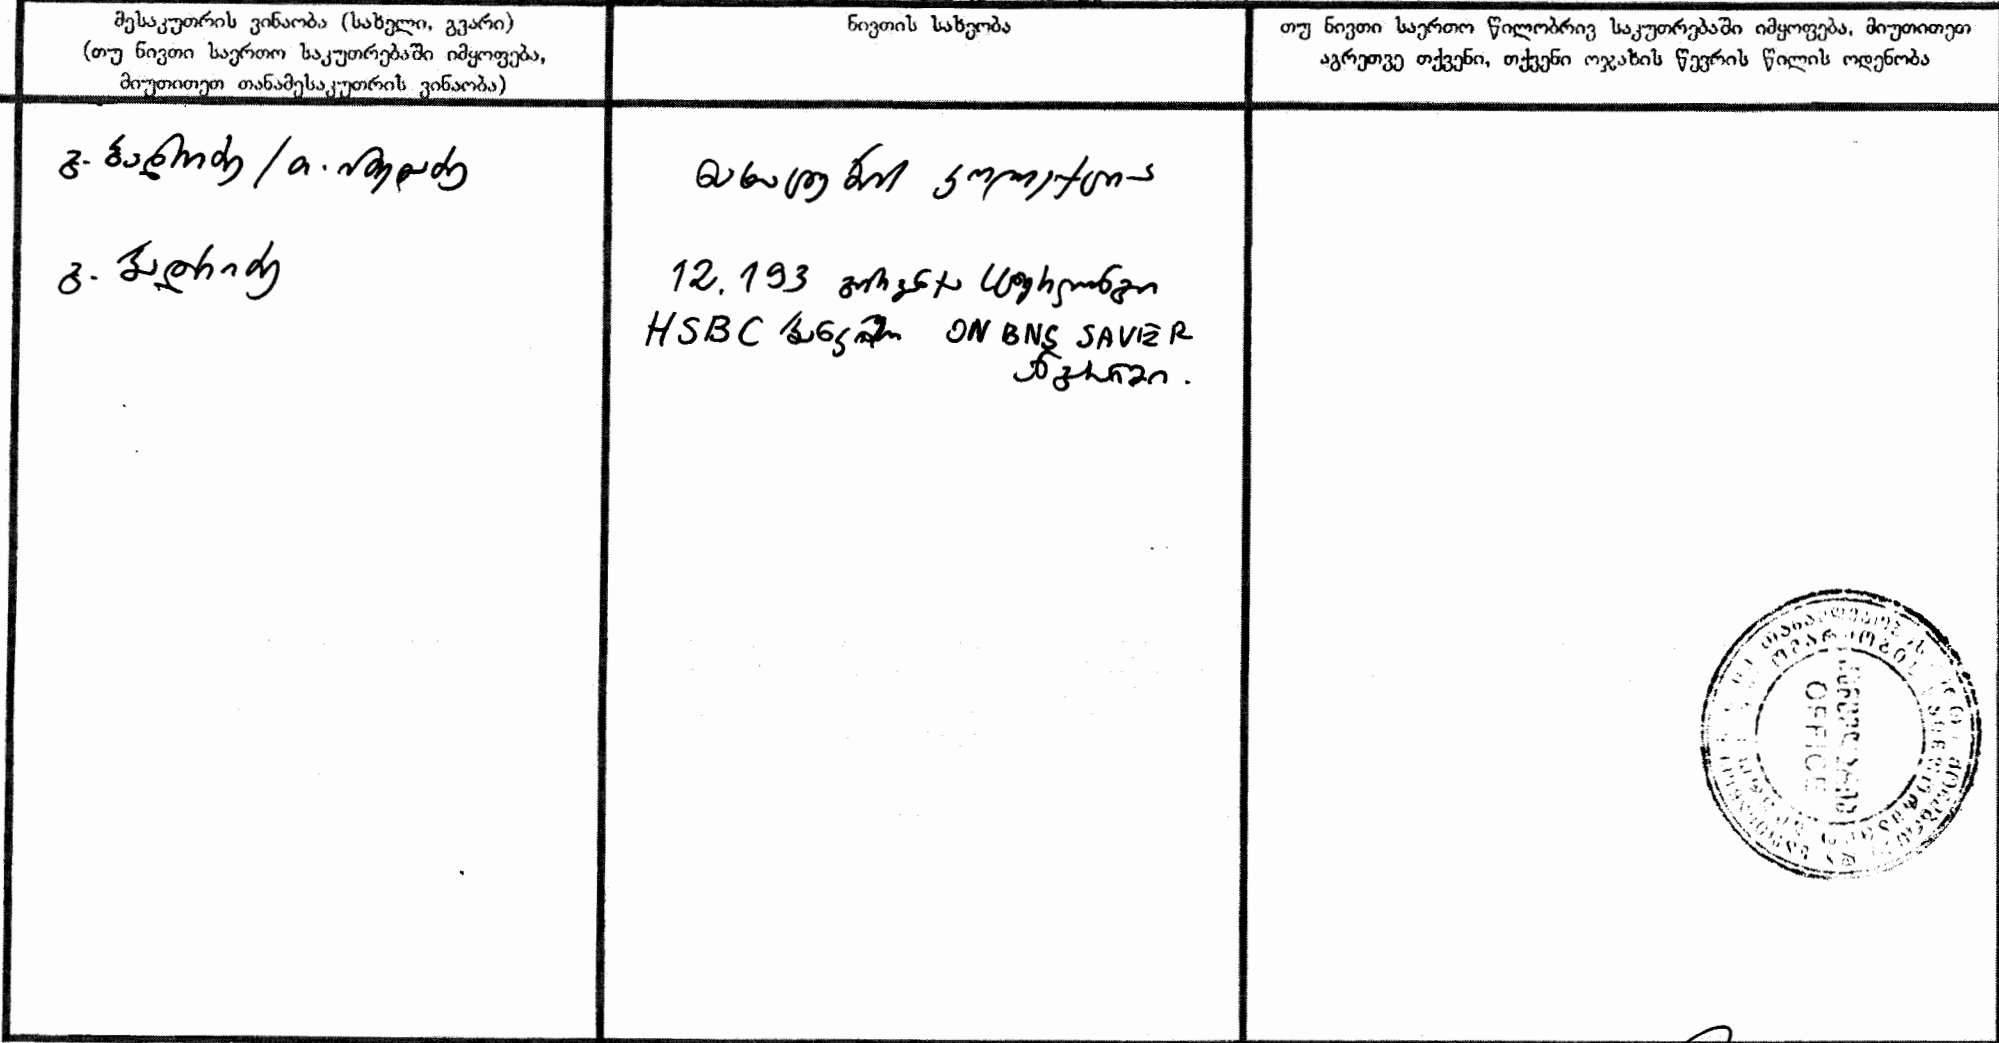 მესაკუთრის ვინაობა (სახელი, გვარი)
(თუ ნივთი საერთო საკუთრებაში იმყოფება,
მიუთითეთ თანამესაკუთრის ვინაობა)
ნივთის სახეობა
თუ ნივთი საერთო წილობრივ საკუთრებაში იმყოფება, მიუთითეთ
აგრეთვე თქვენი, თქვენი ოჯახის წევრის წილის ოდენობა
გ. ბადრიძე / თ. იმედაძე
მხატვრის კოლექცია
გ. ბადრიძე
12.193 გირვანქა სტერლინგი
HSBC ბანკში ON BNS SAVER
ანგარიშში.
OFFICE